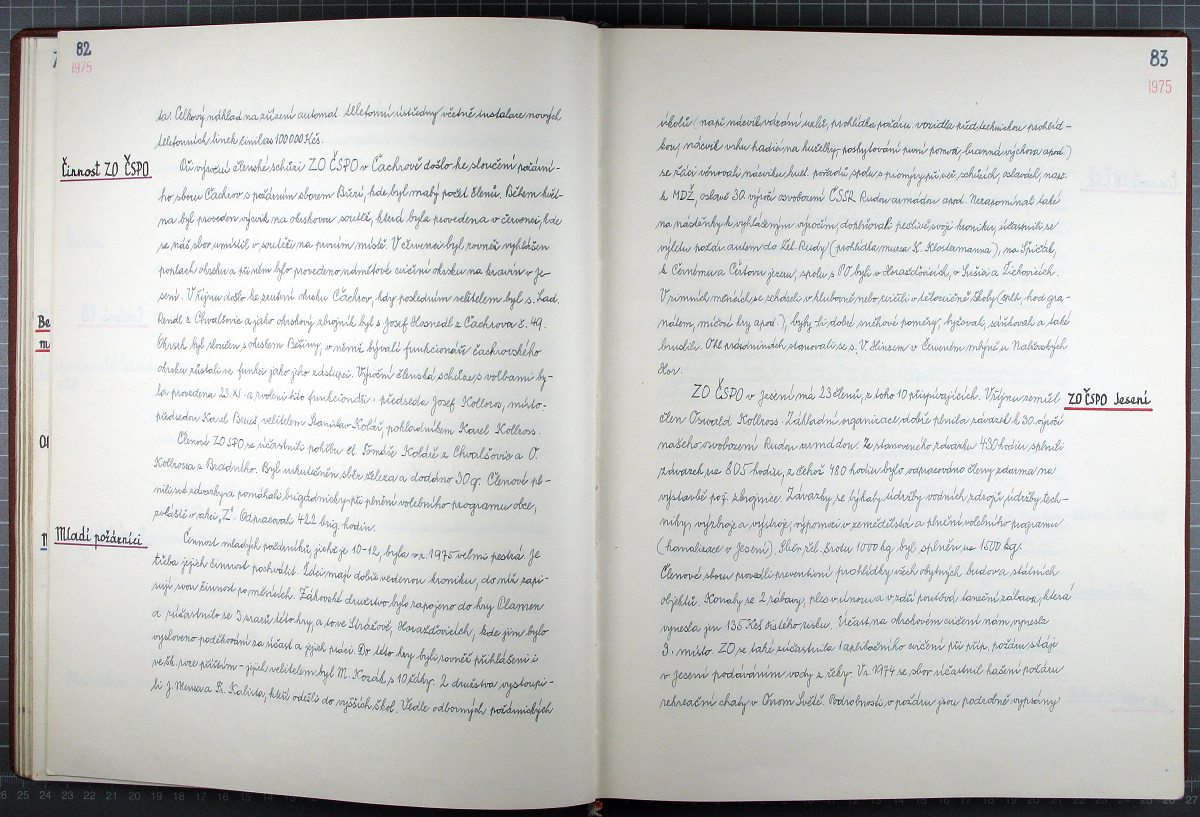 82
1975
ta. Celkový náklad na zřízení automat. telefonní ústředny včetně instalace nových
telefonních linek činil as 100 000 Kčs.
Činnost ZO ČSPO
Při výroční členské schůzi ZO ČSPO v Čachrově došlo ke sloučení požární-
ho sboru Čachrov s požárním sborem Bíří, kde byl malý počet členů. Během květ-
na byl proveden výcvik na okrskovou soutěž, která byla provedena v červenci, kde
se náš sbor umístil v soutěži na prvním místě. V červenci byl rovněž vyhlášen
poplach okrsku a při něm bylo provedeno námětové cvičení okrsku na kravín v Je-
sení. V říjnu došlo ke zrušení okrsku Čachrov, kdy posledním velitelem byl s. Lad.
Rendl z Chvalšovic a jako okrskový zbrojník byl s. Josef Hosnedl z Čachrova č. 49.
Okrsek byl sloučen s okrskem Běšiny, v němž bývalí funkcionáři čachrovského
okrsku zůstali ve funkci jako jeho zástupci. Výroční členská schůze s volbami by-
la provedena 23. XI. a zvoleni tito funkcionáři: předseda Josef Kollros, místo-
předsedou Karel Beneš, velitelem Stanislav Kolář, pokladníkem Karel Kollross.
Členové ZO SPO se účastnili pohřbu čl. Tomáše Koláře z Chvalšovic a O.
Kollrossa z Bradného. Byl uskutečněn sběr železa a dodáno 30 q. Členové pl-
nili své závazky a pomáhali brigádnicky při plnění volebního programu obce,
zvláště v akci „Z". Odpracovali 422 brig. hodin.
Mladí požárníci
Činnost mladých požárníků, jichž je 10-12, byla v r. 1975 velmi pestrá. Je
třeba jejich činnost pochválit. Žáci mají dobře vedenou kroniku, do níž zapi-
sují svou činnost po měsících. Žákovské družstvo bylo zapojeno do hry Plamen
a zúčastnilo se 3 srazů této hry, a to ve Strážově, Horažďovicích, kde jim bylo
vysloveno poděkování za účast a jejich práci. Do této hry byli rovněž přihlášeni i
ve šk. roce příštím - jejich velitelem byl M. Kozák s 10 žáky. Z družstva vystoupi-
li J. Menza a Fr. Kalista, kteří odešli do vyšších škol. Vedle odborných požárnických
83
1975
úkolů (např. nácvik vázání uzlů, prohlídka požáru. vozidla před technickou prohlíd-
kou, nácvik vrhu hadic na kuželky, poskytování první pomoci, branná výchova apod.)
se žáci věnovali nácviku kult. pořadů, spolu s pionýry při věř. schůzích, oslavách, např.
k MDŽ, oslavě 30. výročí osvobození ČSSR Rudou armádou apod. Nezapomínali také
na nástěnky k vyhlášeným výročím, doplňovali pečlivě svoji kroniku, účastnili se
výletu požár. autem do Žel. Rudy (prohlídka muzea K. Klostermanna), na Špičák,
k Černému a Čertovu jezeru, spolu s PO byli v Horažďovicích, v Sušici a Žichovicích.
V zimních měsících se scházeli v klubovně nebo cvičili v tělocvičně školy (šplh, hod gra-
nátem, míčové hry apod.), byly-li dobré sněhové poměry, lyžovali, sáňkovali a také
bruslili. O hl. prázdninách stanovali se s. V. Hinzem v Červeném mlýně u Nalžovských
Hor.
ZO ČSPO Jesení
ZO ČSPO v Jesení má 23 členů, z toho 10 přispívajících. V říjnu zemřel
člen Oswald Kollross. Základní organizace dobře plnila závazek k 30. výročí
našeho osvobození Rudou armádou. Ze stanoveného závazku 430 hodin splnili
závazek na 805 hodin, z čehož 480 hodin bylo odpracováno členy zdarma na
výstavbě pož. zbrojnice. Závazky se týkaly údržby vodních zdrojů, údržby tech-
niky, výzbroje a výstroje, výpomoci v zemědělství a plnění volebního programu
(kanalizace v Jesení). Sběr žel. šrotu 1000 kg. byl splněn na 1500 kg.
Členové sboru prováděli preventivní prohlídky všech obytných budov a státních
objektů. Konaly se 2 zábavy, ples v únoru a v září pouťová taneční zábava, která
vynesla jen 135 Kčs čistého zisku. Účast na okrskovém cvičení nám vynesla
3. místo. ZO se také zúčastnila 1 taktického cvičení při příp. požáru stáje
v Jesení podáváním vody z řeky. V r. 1974 se sbor účastnil hašení požáru
rekreační chaty v Onom Světě. Podrobnosti o požáru jsou podrobně vypsány